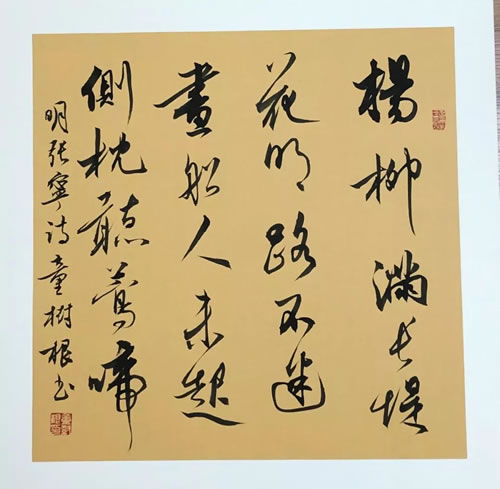 楊柳滿长堤
花明路不迷
畫船人未起
側枕聽鶯啼
明張寧诗童樹根书